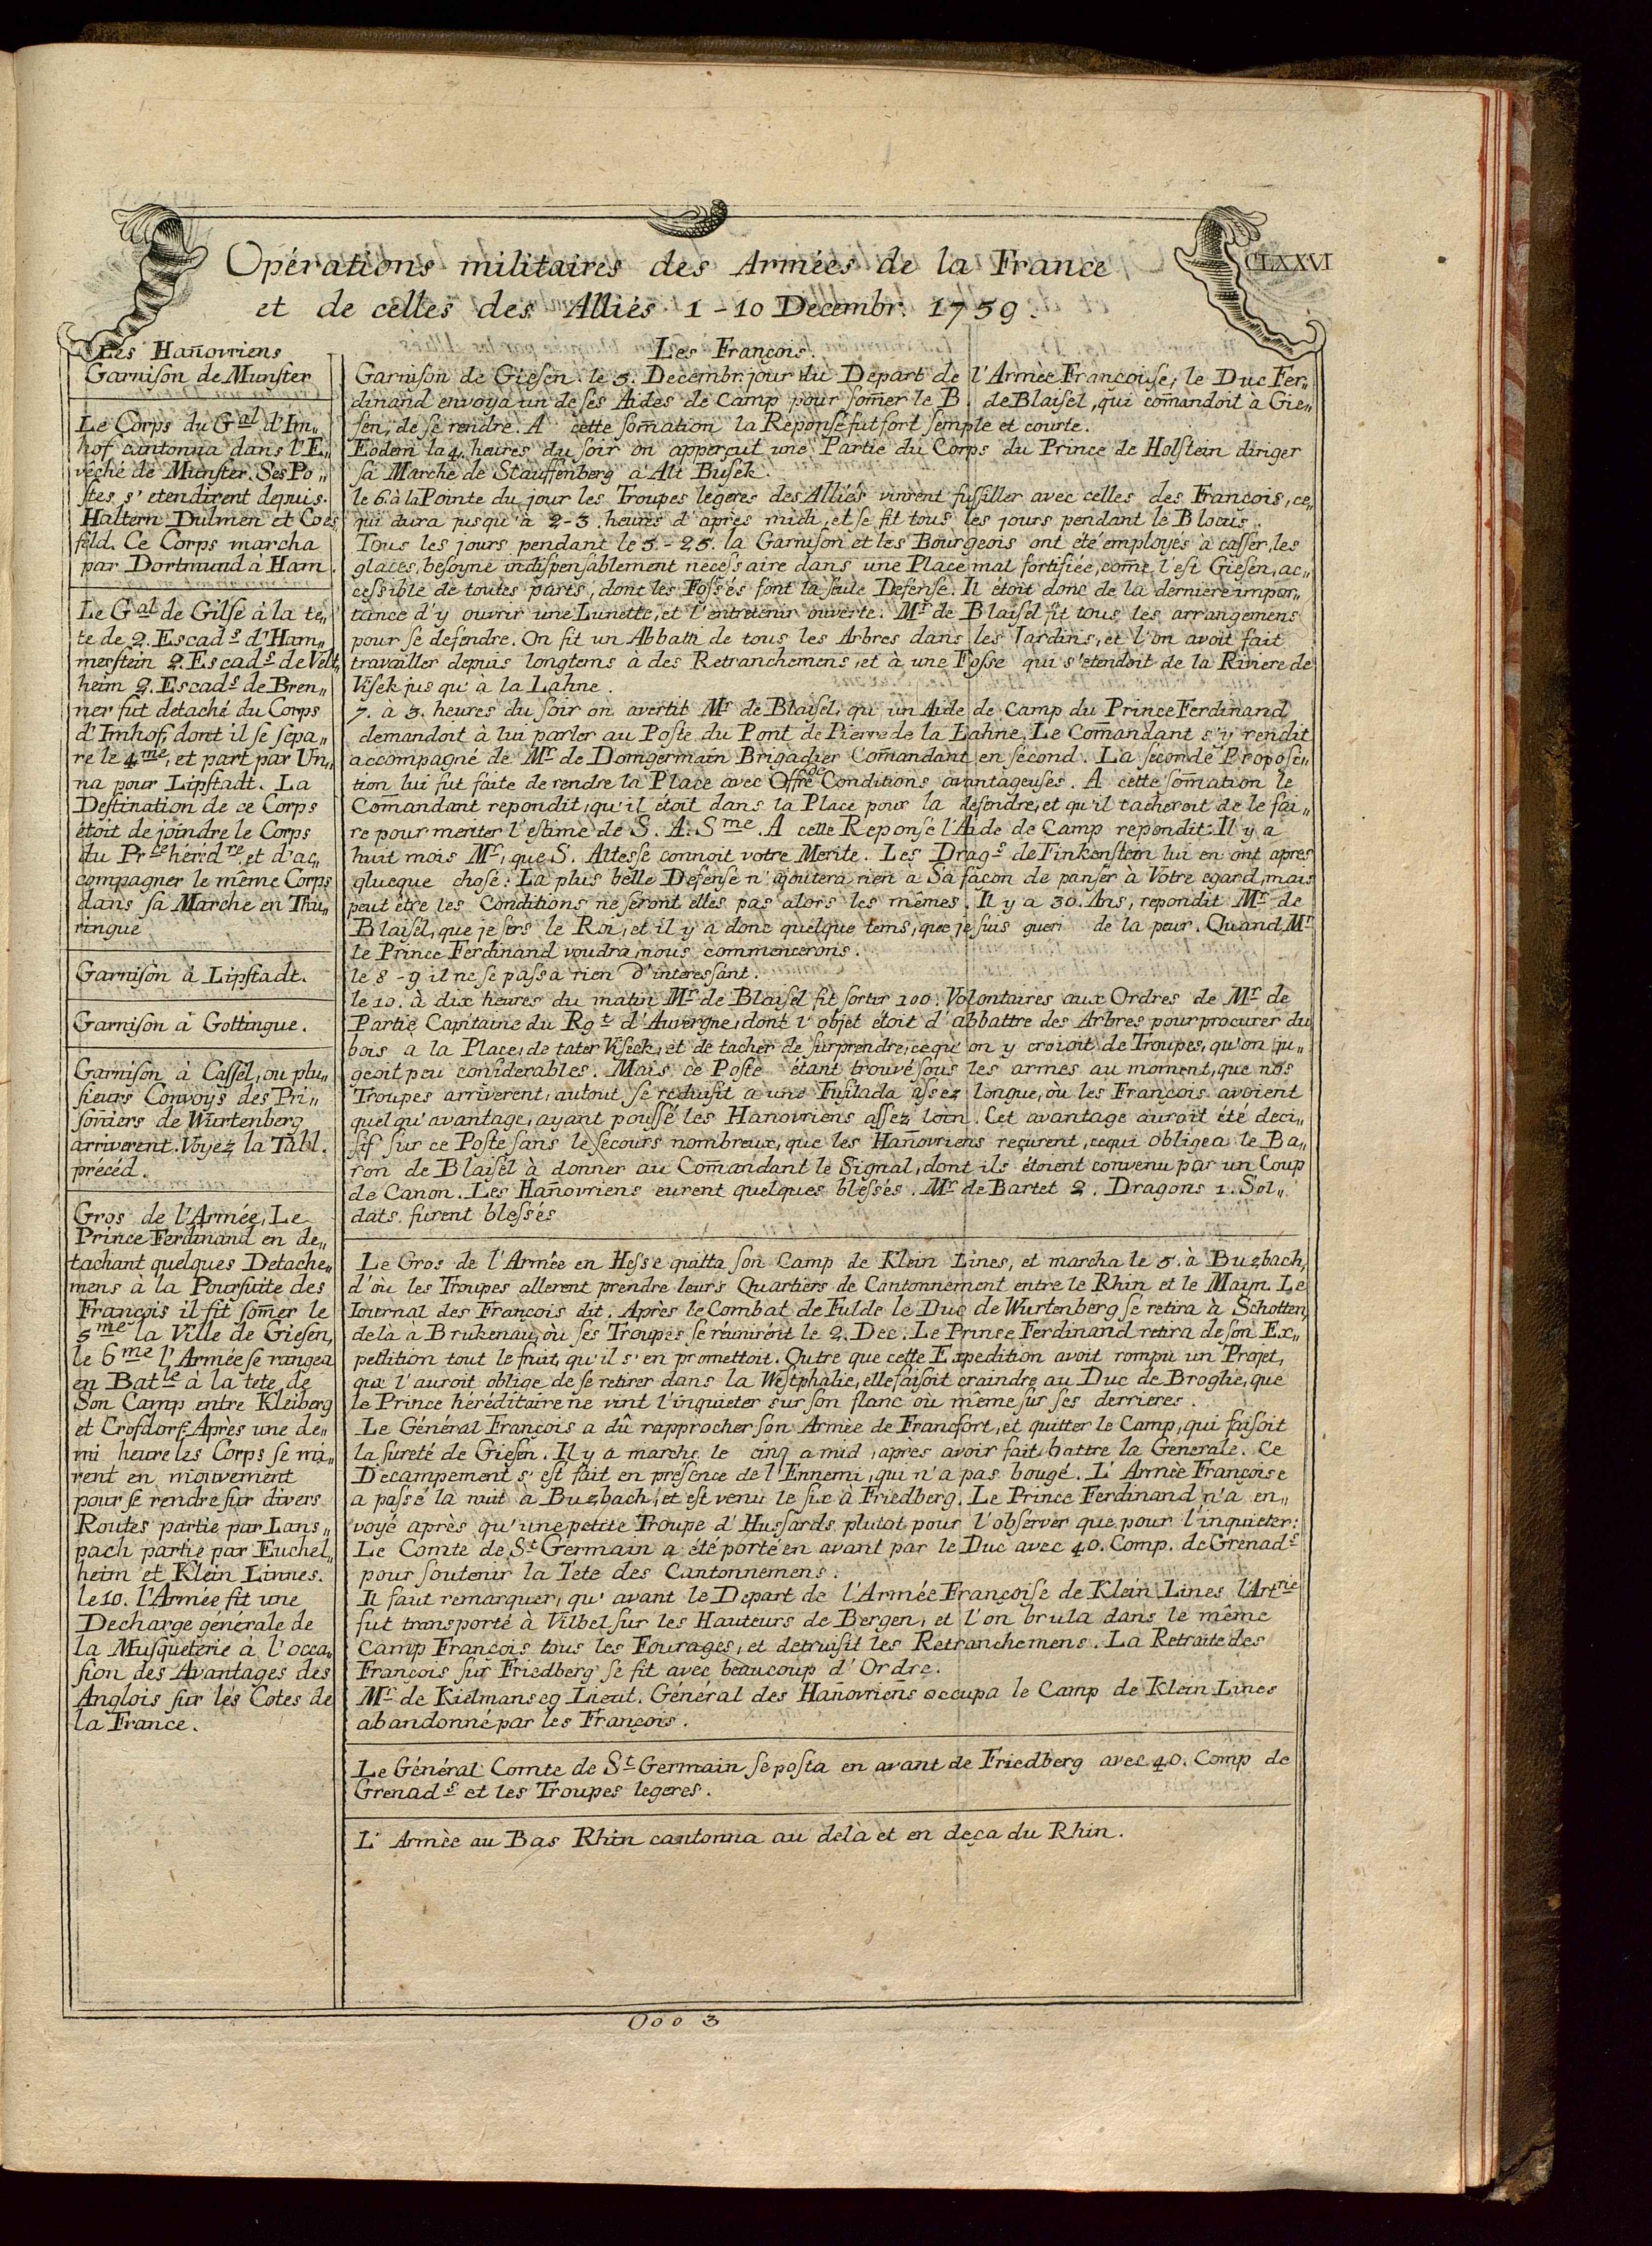 CLXXVI
Opérations militaires des Armées de la France
et de celles des Alliés 1-10 Decembr. 1759.
Les Hañovriens
Garnison de Munster
Le Corps du Gal d'Im„
hof cantonna dans l'E„
véché de Munster. Ses Po„
stes s'etendirent depuis
Haltern Dulmen et Coes
feld. Ce Corps marcha
par Dortmund à Ham.
Le Gal de Gilse à la te„
te de 2. Escads d'Ham„
merstein 2. Escads de Velt„
heim 2. Escads de Bren„
ner fut detaché du Corps
d'Imhof, dont il se sepa„
re le 4me, et part par Un„
na pour Lipstadt. La
Destination de ce Corps
étoit de joindre le Corps
du Prce héréd re et d'ac„
compagner le même Corps
dans sa Marche en Thu„
ringue
Garnison à Lipstadt.
Garnison à Gottingue.
Garnison à Cassel, ou plu„
sieurs Convoys des Pri„
soñiers de Wurtenberg
arriverent. Voyez la Tabl.
précéd.
Gros de l'Armée, Le
Prince Ferdinand en de„
tachant quelques Detache„
mens à la Poursuite des
François il fit som̃er le
5me la Ville de Giesen,
le 6me l'Armée se rangea
en Batle à la tete de
Son Camp entre Kleiberg
et Crofdorf. Après une de„
mi heure les Corps se mi„
rent en mouvement
pour se rendre sur divers
Routes partie par Lans„
pach partie par Euchel„
heim et Klein Linnes.
le 10. l'Armée fit une
Decharge générale de
la Musqueterie à l'occa„
sion des Avantages des
Anglois sur les Cotes de
la France.
Les François.
Garnison de Giesen. le 5. Decembr. jour du Depart de l'Armée Françoise, le Duc Fer„
dinand envoya un de ses Aides de Camp pour som̃er le B. de Blaisel, qui com̃andoit à Gie„
sen, de se rendre. A cette som̃ation la Reponse fut fort semple et courte.
Eodem la 4. heures du soir on apperçut une Partie du Corps du Prince de Holstein diriger
sa Marche de Stauffenberg à Alt Busek.
le 6. à la Pointe du jour les Troupes legeres des Alliés vinrent fussiller avec celles des François, ce„
qui dura jusqu'à 2-3. heures d'après midi, et se fit tous les jours pendant le Blocus.
Tous les jours pendant le 5.-25. la Garnison et les Bourgeois ont été employés à casser, les
glaces, besoyne indispensablement necessaire dans une Place mal fortifiée, com̃e l'est Giesen, ac„
cessible de toutes parts, dont les Fossés font la seule Defense. Il étoit donc de la derniere impor„
tance d'y ouvrir une Lunette, et l'entretenir ouverte. Mr de Blaisel fit tous les arrangemens
pour se defendre. On fit un Abbath de tous les Arbres dans les Jardins, et l'on avoit fait
travailler depuis longtems à des Retranchemens, et à une Fosse qui s'etendoit de la Riviere de
Visek jusqu'à la Lahne.
7. à 3. heures du soir on avertit Mr de Blaisel, qu'un Aide de Camp du Prince Ferdinand
demandoit à lui parler au Poste du Pont de Pierre de la Lahne, Le Com̃andant s'y rendit
accompagné de Mr de Domgermain Brigadier Com̃andant en second. La seconde Proposi„
tion lui fut faite de rendre la Place avec Offre de Conditions avantageuses. A cette som̃ation le
Com̃andant repondit, qu'il étoit dans la Place pour la defendre, et qu'il tacheroit de le fai„
re pour meriter l'estime de S. A. Sme. A cette Reponse l'Aide de Camp repondit: Il y a
huit mois Mr, que S. Altesse connoit votre Merite. Les Drags de Finkenstein lui en ont apres
qlueque chose. La plus belle Defense n'ajoutera rien à Sa façon de panser à Votre egard, mais
peut être les Conditions ne seront elles pas alors les mêmes. Il y a 30. Ans, repondit Mr de
Blaisel, que je sers le Roi, et il y a donc quelque tems, que je suis gueri de la peur. Quand Mr
le Prince Ferdinand voudra nous commencerons.
le 8-9 il ne se passa rien d'interessant.
le 10. à dix heures du matin Mr de Blaisel fit sortir 100. Volontaires aux Ordres de Mr de
Partie Capitaine du Rgt d'Auvergne, dont l'objet étoit d'abbattre des Arbres pour procurer du
bois a la Place, de tater Viseek, et de tacher de surprendre, ce qu'on y croioit de Troupes, qu'on ju„
geoit peu coniderables. Mais ce Poste étant trouvé sous les armes au moment, que nos
Troupes arriverent, autout se reduisit a une Fusilada assez longue, où les François avoient
quelqu'avantage, ayant poussé les Hanovriens assez loin. Cet avantage auroit été deci„
sif sur ce Poste sans le secours nombreux, que les Hañovriens reçurent, ce qui obligea le Ba„
ron de Blaisel à donner au Com̃andant le Signal, dont ils étoient convenu par un Coup
de Canon. Les Hañovriens eurent quelques blessés. Mr de Bartet 2. Dragons 1. Sol„
dats furent blessés
Le Gros de l'Armée en Hesse quitta son Camp de Klein Lines, et marcha le 5. à Buzbach,
d'où les Troupes allerent prendre leurs Quartiers de Cantonnement entre le Rhin et le Maim. Le
Iournal des François dit. Après le Combat de Fulde le Duc de Wurtenberg se retira à Schotten,
delà à Brukenau, où ses Troupes se réunirent le 2. Dec. Le Prinse Ferdinand retira de son Ex„
petlition tout le fruit, qu'il s'en promettoit. Outre que cette Expedition avoit rompu un Projet,
qui l'auroit oblige de se retirer dans la Westphalie, elle faisoit craindre au Duc de Broglie, que
le Prince héréditaire ne vint l'inquieter sur son flanc ou même sur ses derrieres.
Le Général François a dû rapprocher son Armée de Francfort, et quitter le Camp, qui faisoit
la sureté de Giesen. Il y a marché le cinq a mid, après avoir fait battre la Générale. Ce
Decampement s'est fait en présence de l'Ennemi, qui n'a pas bougé. L'Armée Françoise
a passé la nuit à Buzbach, et est venu le six à Friedberg. Le Prince Ferdinand n'a en„
voyé après qu'une petite Troupe d'Hussards plutot pour l'observer que pour l'inquieter:
Le Comte de St Germain a été porté en avant par le Duc avec 40. Comp. de Grenads
pour soutenir la Tete des Cantonnemens.
Il faut remarquer, qu'avant le Depart de l'Armée Françoise de Klein Lines l'Artrie
fut transporté à Vilbel sur les Hauteurs de Bergen, et l'on brula dans le même
Camp François tous les Fourages, et detruisit les Retranchemens. La Retraite des
François sur Friedberg se fit avec beaucoup d'Ordre.
Mr de Kielmanseg Lieut. Général des Hañovrieñs occupa le Camp de Klein Lines
abandonné par les François.
Le Général Comte de St Germain se posta en avant de Friedberg avec 40. Comp de
Grenads et les Troupes legeres.
L'Armée au Bas Rhin cantonna au delà et en deça du Rhin.
Ooo 3